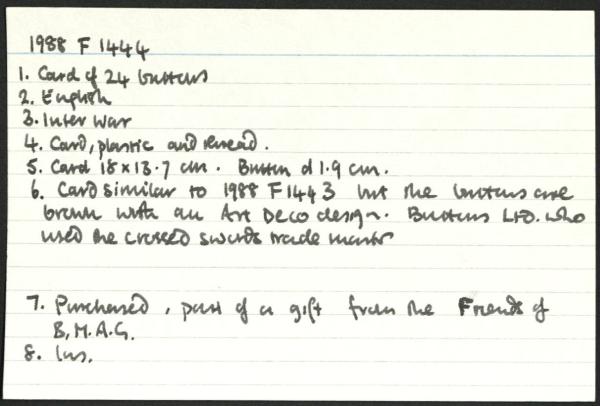 1988 F 1444
1. Card of 24 buttons
2. English
3. Inter War
4. Card, plastic and thread.
5. Card 18 x 13.7 cm. Button d 1.9 cm.
6. Card similar to 1988 F 1443 but the buttons are
brown with an Art Deco design. Buttons LTD. who
used the crossed swords trade mark
7. Purchased, part of a gift from the Friends of
B.M.A.G.
8. Ins.